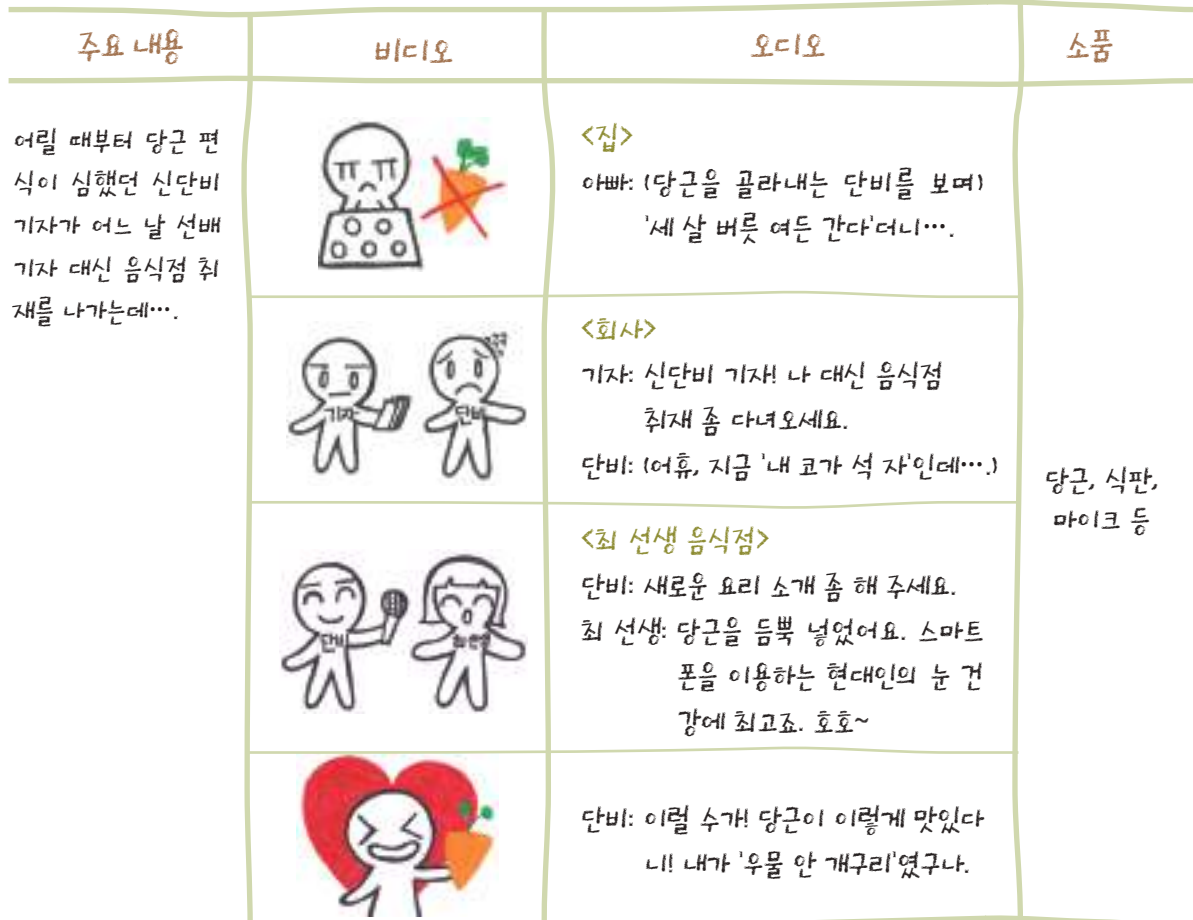 주요 내용
비디오
오디오
소품
어릴 때부터 당근 편
식이 심했던 신단비
기자가 어느 날 선배
기자 대신 음식점 취
재를 나가는데….
<집>
아빠: (당근을 골라내는 단비를 보며)
'세 살 버릇 여든 간다'더니….
기자
단비
<회사>
기자: 신단비 기자! 나 대신 음식점
취재 좀 다녀오세요.
단비: (어휴, 지금 '내 코가 석 자'인데….)
단비
최 선생
<최 선생 음식점>
단비: 새로운 요리 소개 좀 해 주세요.
최 선생: 당근을 듬뿍 넣었어요. 스마트
폰을 이용하는 현대인의 눈 건
강에 최고죠. 호호~
단비: 이럴 수가! 당근이 이렇게 맛있다
니! 내가 '우물 안 개구리'였구나.
당근, 식판,
마이크 등